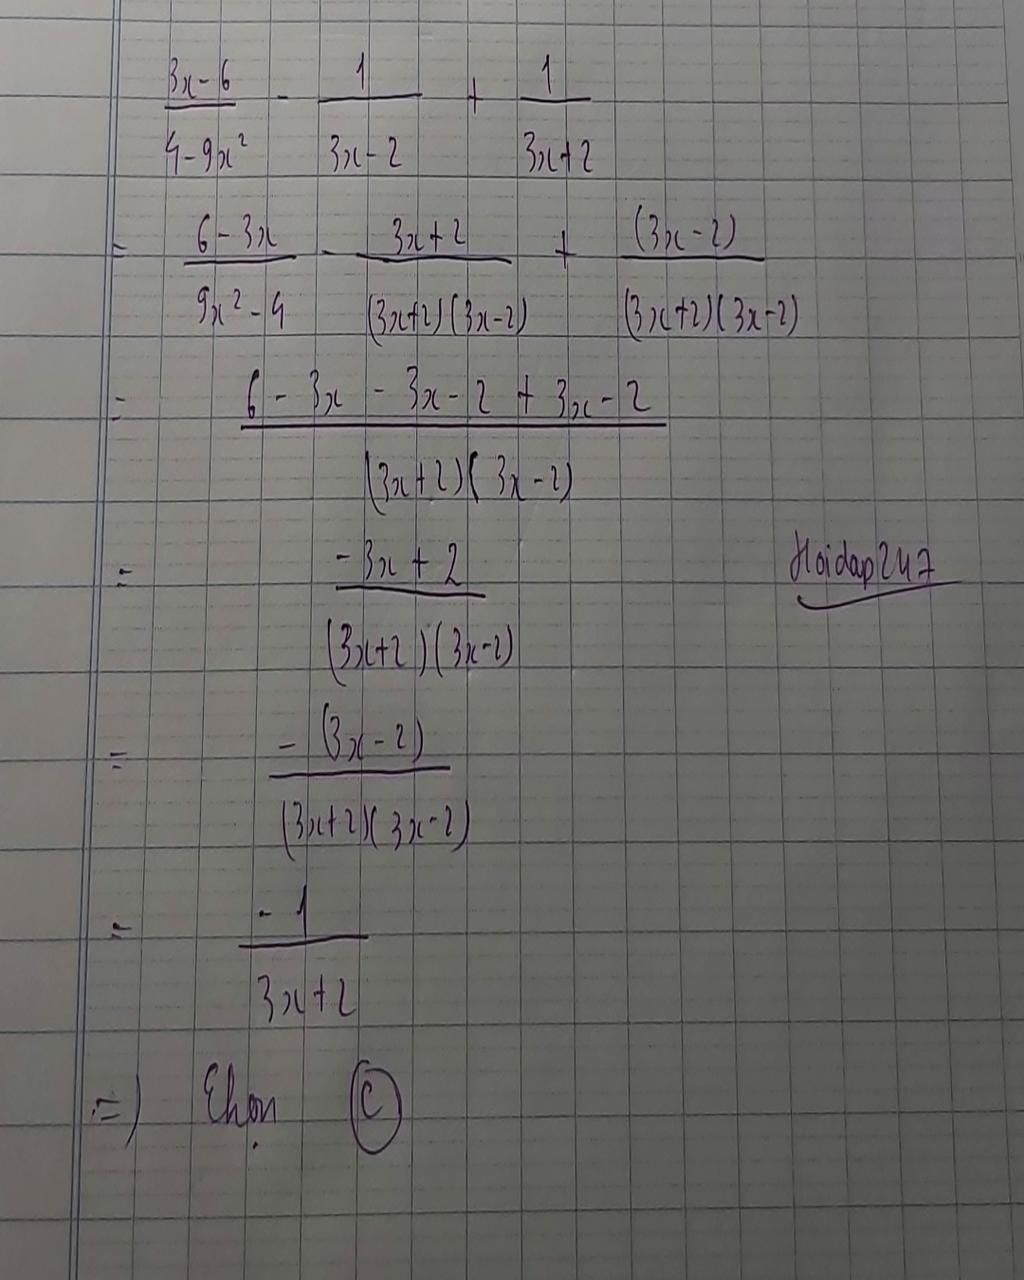 3x-6/4-9x² - 1/3x-2 + 1/3x+2
= 6-3x/9x²-4 - 3x+2/(3x+2)(3x-2) + (3x-2)/(3x+2)(3x-2)
= 6-3x-3x-2+3x-2/(3x+2)(3x-2)
= -3x+2/(3x+2)(3x-2)
Hoidap247
= -(3x-2)/(3x+2)(3x-2)
= -1/3x+2
=) Chọn C